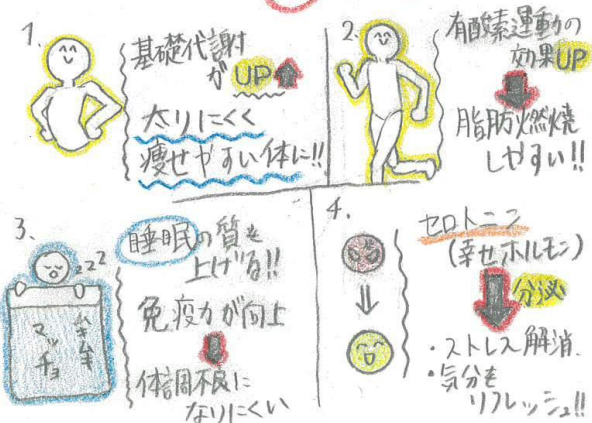 1.
基礎代謝
が UP
太りにくく
痩せやすい体に!!
2.
有酸素運動の
効果UP
脂肪燃焼
しやすい!!
3.
zzz
マッチョ
睡眠の質を
上げる!!
免疫力が向上
体調不良に
なりにくい
4.
セロトニン
(幸せホルモン)
分泌
・ストレス解消.
・気分を
リフレッシュ!!